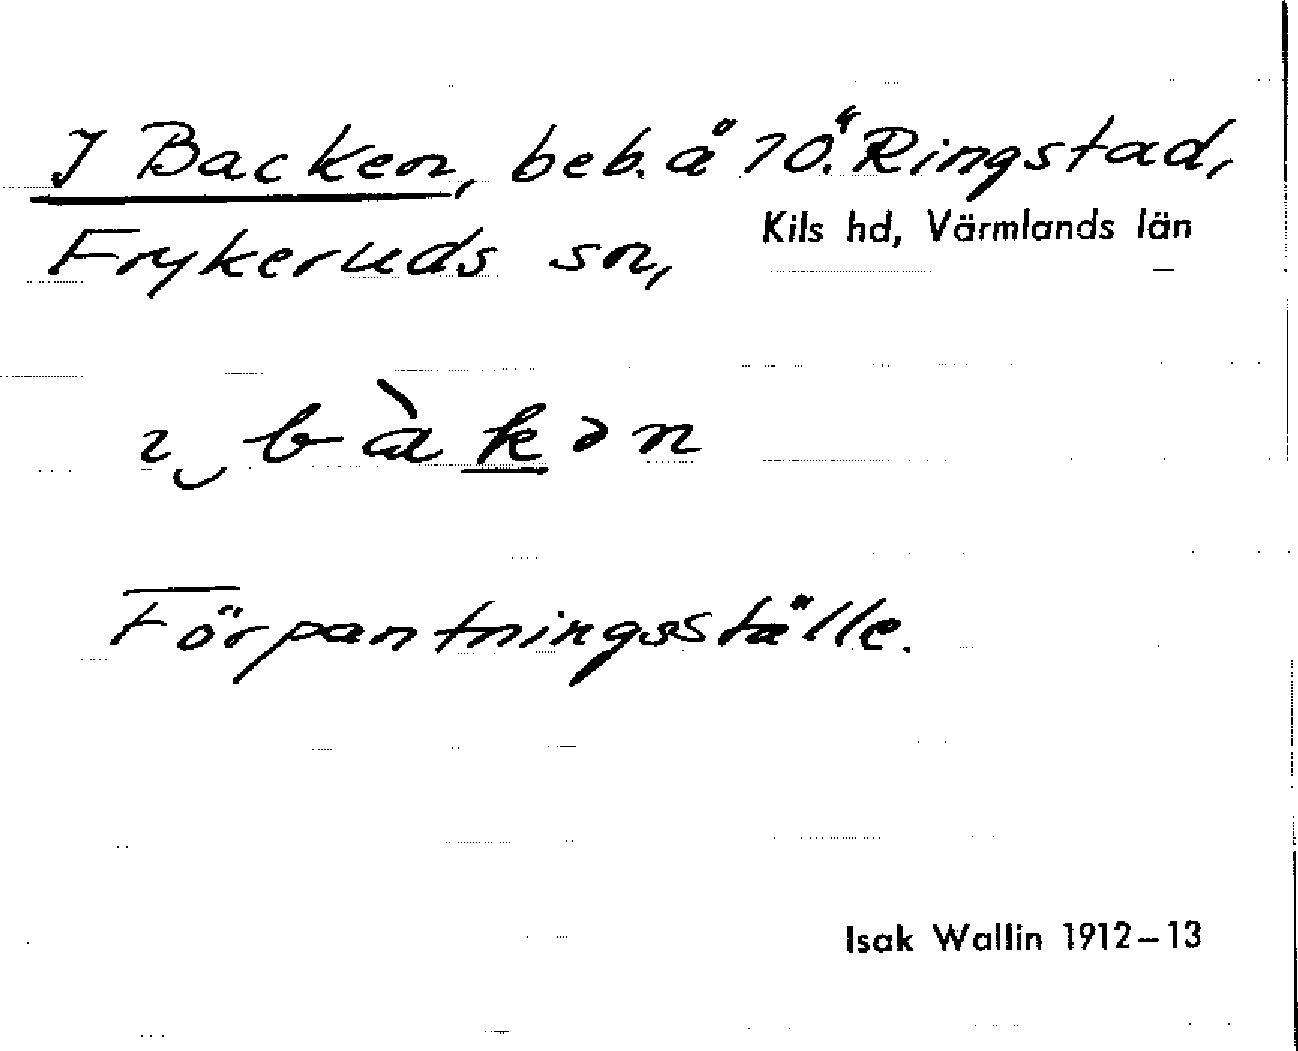 I Backen, beb. å 1 Ö. Ringstad,
Frykeruds sn, Kils hd, Värmlands län
ı‿bàkən
Förpantningsställe.
Isak Wallin 1912–13